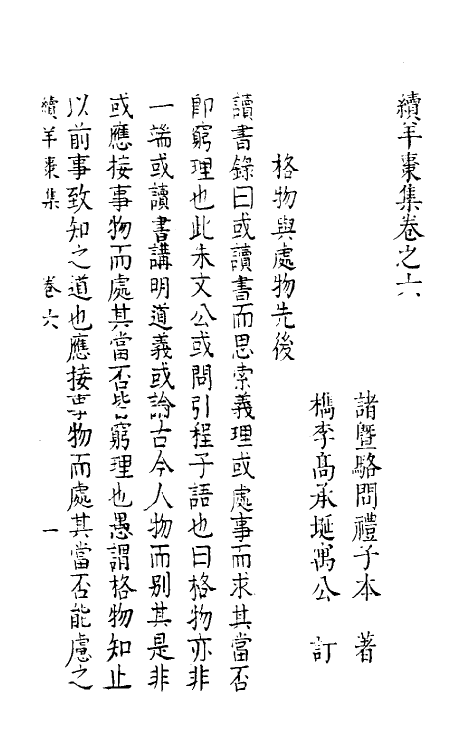 續羊棗集卷之六
諸暨駱問禮子本　著
檇李高承埏寓公　訂
格物與處物先後
讀書錄曰或讀書而思索義理或處事而求其當否
卽窮理也此朱文公或問引程子語也曰格物亦非
一端或讀書講明道義或論古今人物而別其是非
或應接事物而處其當否皆窮理也愚謂格物知止
以前事致知之道也應接事物而處其當否能慮之
續羊棗集　卷六　一